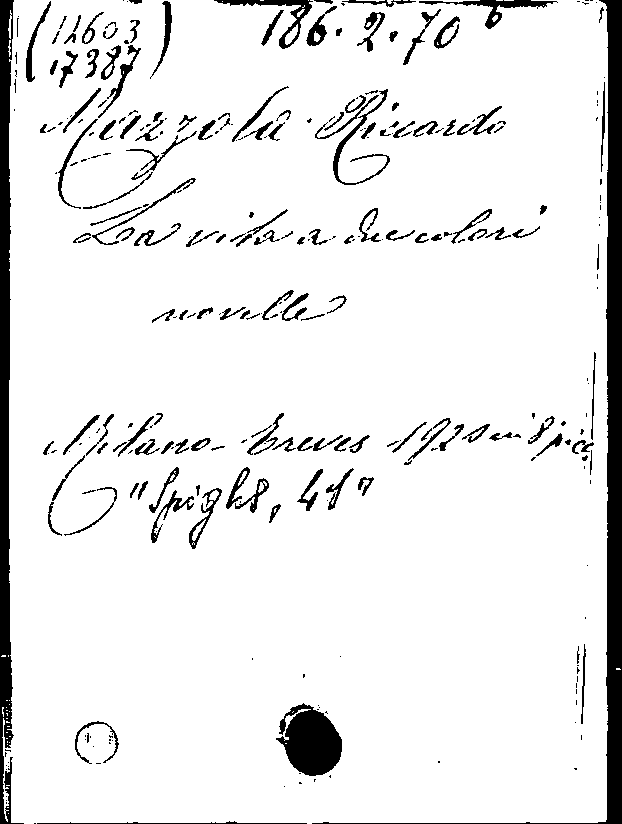 (12603
17387)
186.2.70 b
Mazzola Riccardo
La vita a due colori
novelle
Milano - Treves 192 in 8 picc.
"Spighe,